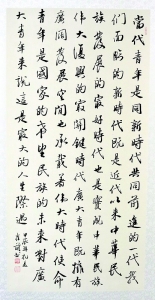 當代青年是同新時代共同前進的一代我
们面臨的新時代既是近代以来中華民族
發展的最好時代也是實現中華民族
偉大復興的最關鍵時代廣大青年既擁有
廣闊發展空間也承載着偉大時代使命
青年是國家的希望民族的未来對廣
大青年来說這是最大的人生際遇